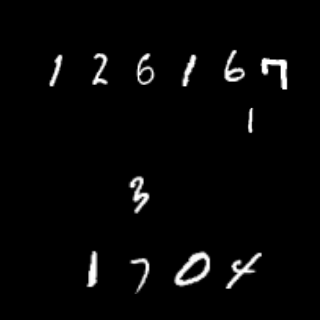 1 2 6 1 6 7
1
3
1 7 0 4